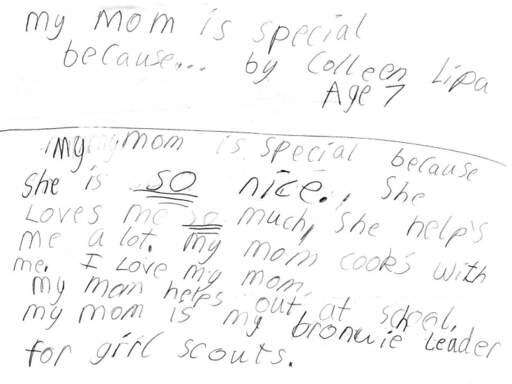 my Mom is special
because... by Colleen Lipa
Age 7
My mom is special because
She is so nice., She
Loves me so much, She help's
me a lot. my mom cooks with
me. I Love my mom.
my mom helps out at school.
my mom is my bronwie Leader
for girl scouts.